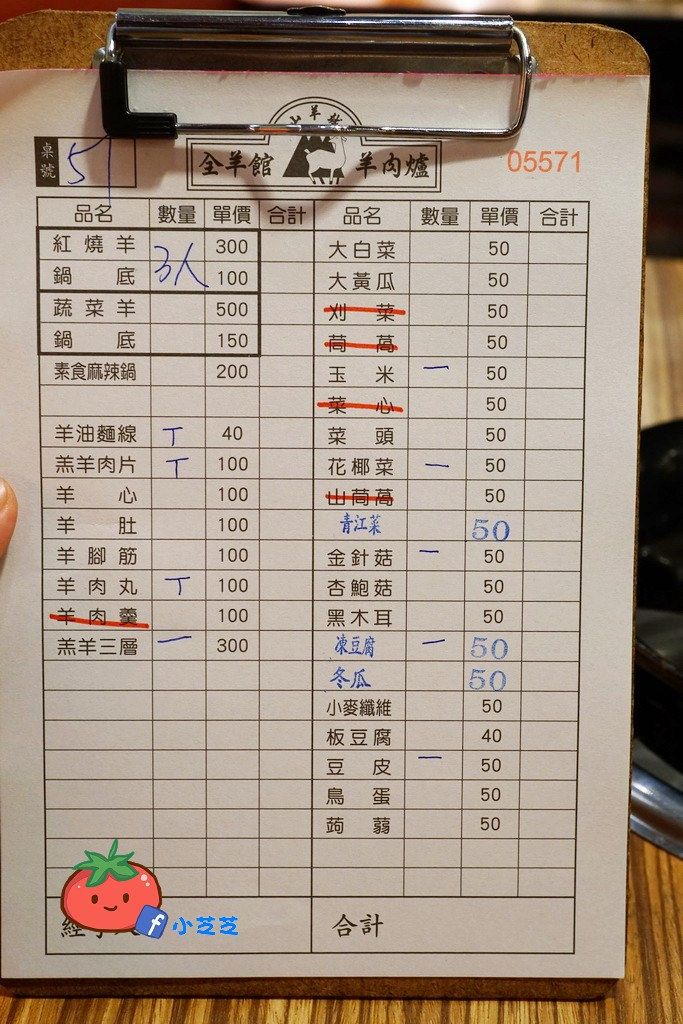 桌號 57
全羊館 羊肉爐
05571
品名 數量 單價 合計 品名 數量 單價 合計
紅燒羊 300 大白菜 50
鍋底 3人 100 大黃瓜 50
蔬菜羊 500 刈菜 50
鍋底 150 茼萵 50
素食麻辣鍋 200 玉米 一 50
菜心 50
羊油麵線 丅 40 菜頭 50
羔羊肉片 丅 100 花椰菜 一 50
羊心 100 山茼萵 50
羊肚 100 青江菜 50
羊腳筋 100 金針菇 一 50
羊肉丸 丅 100 杏鮑菇 50
羊肉羹 100 黑木耳 50
羔羊三層 一 300 凍豆腐 一 50
冬瓜 50
小麥纖維 50
板豆腐 40
豆皮 一 50
鳥蛋 50
蒟蒻 50
合計
f 小芝芝